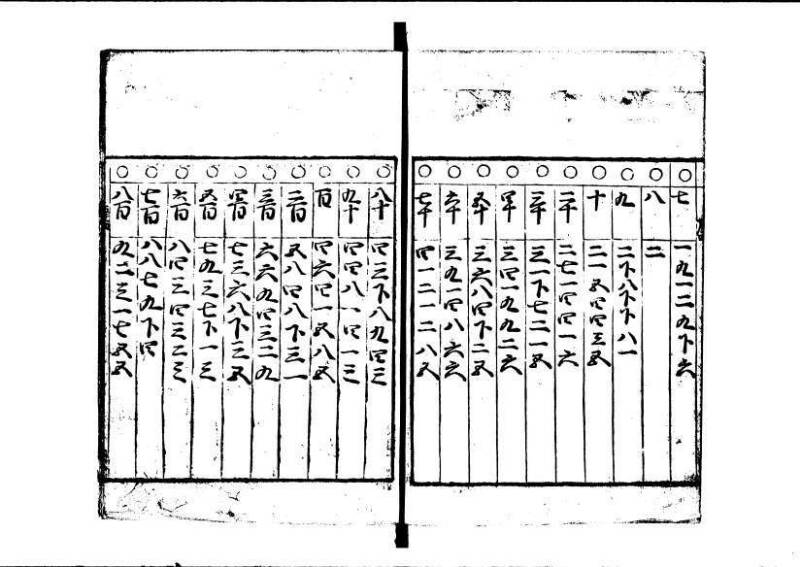 ○ 七 一九一二九下六
○ 八 二
○ 九 二下八下下八一
○ 十 二一五四四三五
○ 二十 二七一四四一六
○ 三十 三一下七二一五
○ 四十 三四一九九二六
○ 五十 三六八四下二五
○ 六十 三九一四八六六
○ 七十 四一二一二八五
○ 八十 四三下八九四三
○ 九十 四四八一四一三
○ 百 四六四一五八五
○ 二百 五八四八下三一
○ 三百 六六九四三二九
○ 四百 七三六八下三五
○ 五百 七九三七下一三
○ 六百 八四三四三二三
○ 七百 八八七九下四
○ 八百 九二三一七五五